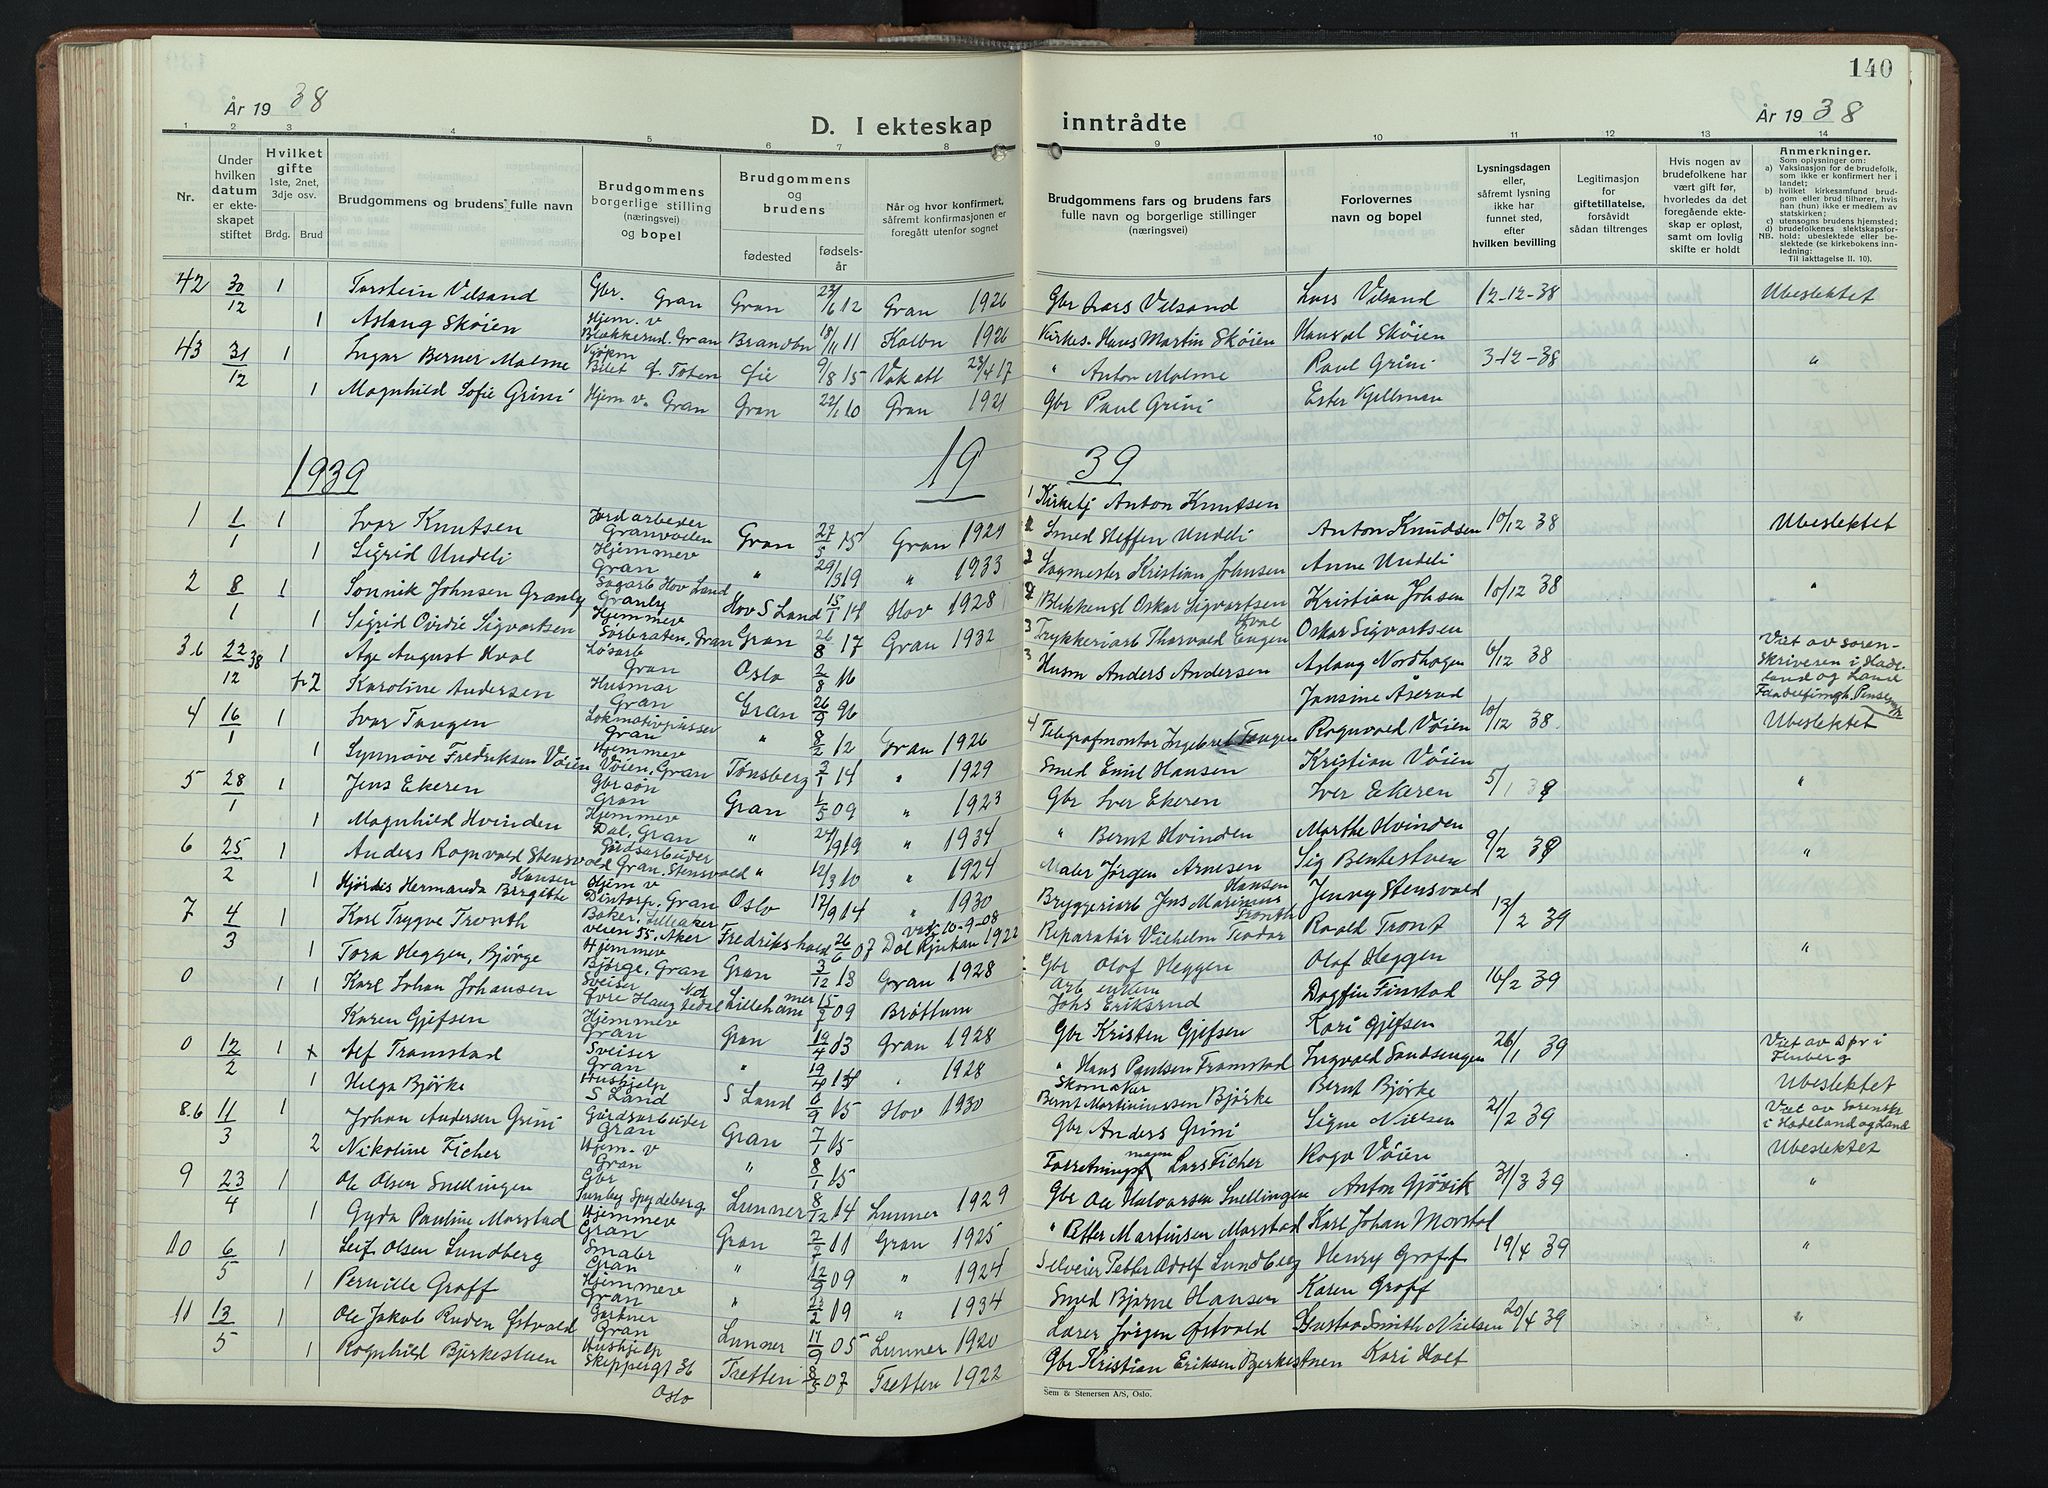 140
År 19 38
D. I ekteskap inntrådte
År 19 38
1 2 3 4 5 6 7 8 9 10 11 12 13 14
Nr.
Under hvilken datum er ekteskapet stiftet
Hvilket gifte 1ste, 2net, 3dje osv.
Brdg. Brud
Brudgommens og brudens fulle navn
Brudgommens borgerlige stilling (næringsvei) og bopel
Brudgommens og brudens
fødested
fødselsår
Når og hvor konfirmert, såfremt konfirmasjonen er foregått utenfor sognet
Brudgommens fars og brudens fars fulle navn og borgerlige stillinger (næringsvei)
Forlovernes navn og bopel
Lysningsdagen eller, såfremt lysning ikke har funnet sted, efter hvilken bevilling
Legitimasjon for giftetillatelse, forsåvidt sådan tiltrenges
Hvis nogen av brudefolkene har vært gift før, hvorledes da det foregående ekteskap er opløst, samt om lovlig skifte er holdt
Anmerkninger.
Som oplysninger om:
a) Vaksinasjon for de brudefolk, som ikke er konfirmert her i landet;
b) hvilket kirkesamfund brudgom eller brud tilhører, hvis han (hun) ikke er medlem av statskirken;
c) utensogns brudens hjemsted;
d) brudefolkenes slektskapsforhold: ubeslektede eller beslektede (se kirkebokens innledning:
NB. Til iakttagelse II. 10).
42 30/12 1 Torstein Vilsand Gbr. Gran Gran 23/6 12 Gran 1926 Gbr Lars Vilsand Lars Vilsand 12-12-38 Ubeslektet
1 Aslaug Skøien Hjem. v Blekkerud. Gran Brandbu 18/11 11 Kolbu 1926 Kirkes. Hans Martin Skøien Hans al Skøien
43 31/12 1 Ingar Berner Malme Bilet Ø. Toten Eie 9/8 15 Vak att 23/4 17 " Anton Malme Paul Grini 3-12-38 "
1 Magnhild Sofie Grini Hjem v. Gran Gran 22/1 10 Gran 1921 Gbr Paul Grini Ester Kjellman
1939 19 39
1 1/1 1 Ivar Knutsen Jordarbeder Granvolden Gran 27/5 15 Gran 1929 1 Kirketj Anton Knutsen Anton Knudsen 10/12 38 Ubeslektet
1 Sigrid Undeli Hjemmev Gran " 29/3 19 " 1933 Smed Steffen Undeli Anne Undeli
2 8/1 1 Sønnik Johnsen Granby Sagarb Hov Land Granby Hov S Land 15/1 14 Hov 1928 2 Sagmester Kristian Johnsen Kristian Johsen 10/12 38 "
1 Sigrid Ovidie Sigvartsen Hjemmev Sorbraten, Gran Gran 26/8 17 Gran 1932 2 Blikkensl Oskar Sigvartsen Oskar Sigvartsen
3.b 22/12 38 1 Åge August Hval Løsarb Gran Oslo 2/8 16 3 Trykkeriarb Thorvald Eugen Hval Aslaug Nordhagen 6/12 38 Viet av sorenskriveren i Hadeland og Land
f.2 Karoline Andersen Husmar Gran Gran 26/9 96 3 Husm Anders Andersen Jensine Åserud
4 16/1 1 Ivar Tangen Lokomotivpusser Gran " 8/2 12 Gran 1926 4 Telegrafmontør Ingebret Tangen Ragnvald Vøien 10/12 38 Ubeslektet
1 Synnøve Fredriksen Vøien Hjemmev Vøien, Gran Tønsberg 3/1 14 " 1929 Smed Emil Hansen Kristian Vøien
5 28/1 1 Jens Ekeren Gbr søn Gran Gran 1/5 09 " 1923 Gbr Iver Ekeren Iver Ekeren 5/1 39 "
1 Magnhild Hvinden Hjemmev Dal, Gran " 24/9 19 " 1934 " Bernt Hvinden Marthe Hvinden
6 25/2 1 Anders Ragnvald Stensvold Gårdsarbeider Gran, Stensvold " 12/3 10 " 1924 Maler Jørgen Arnesen Sig Bentestuen 9/2 39 "
1 Hjørdis Hermanda Birgitte Hansen Hjem v Dintorp, Gran Oslo 17/9 14 " 1930 Bryggeriarb Jens Marinius Hansen Jenny Stensvold
7 4/3 1 Karl Trygve Tronth Baker, Lilleakerveien 55, Aker Fredrikshald 26/6 07 vak. 10-9-08 Dal Rjukan 1922 Reparatør Vilhelm Teodor Tronth Roald Tront 13/2 39 "
1 Tora Heggen, Bjørge Hjemmev Bjørge, Gran Gran 3/12 13 Gran 1928 Gbr Olof Heggen Olof Heggen
0 1 1 Karl Johan Johansen Sveiser Øvre Haug Lillehammer 15/7 09 Brøttum Johs Eriksrud Dagfin Finstad 16/2 39
Karen Gjefsen Hjemmev Gran Gran 19/4 03 Gran 1928 Gbr Kristen Gjefsen Kari Gjefsen
0 12/2 1 x Alf Framstad Sveiser Gran " 19/4 14 " 1928 " Hans Paulsen Framstad Ingvald Sandsengen 26/1 39 Viet av spr i Fluberg
1 Helga Bjørke Hushjelp S Land S Land 6/9 15 Hov 1930 Skomaker Bernt Martiniussen Bjørke Bernt Bjørke Ubeslektet
8.b 11/3 1 Johan Andersen Grini Gårdsarbeider Gran Gran 7/1 15 Gbr Anders Grini Signe Nielsen 21/2 39 Viet av sorenskr i Hadeland og Land
2 Nikoline Ficher Hjem. v Gran " 8/1 15 Forretningsmann Lars Ficher Ragv Vøien Ubeslektet
9 23/4 1 Ole Olsen Snellingen Gbr Sunby Spydeberg Lunner 8/12 14 Lunner 1929 Gbr Ole Halvorsen Snellingen Anton Gjøvik 31/3 39 "
1 Gyda Pauline Morstad Hjemmev Gran Gran 2/7 11 Gran 1925 " Petter Martinsen Morstad Karl Johan Morstad
10 6/5 1 Leif Olsen Lundberg Smalr Gran " 12/9 09 " 1924 Selveier Petter Adolf Lundberg Henry Groff 19/4 39 "
1 Pernille Groff Hjemmev Gran " 23/2 19 " 1934 Smed Bjarne Hansen Karen Groff
11 13/5 1 Ole Jakob Ruden Østvold Gartner Gran Lunner 17/9 05 Lunner 1920 Lærer Jørgen Østvold Gustav Smith Nielsen 20/4 39 "
1 Ragnhild Bjerkestuen Hushjelp Skippergt 36 Oslo Tretten 8/5 07 Tretten 1922 Gbr Kristian Eriksen Bjerkestuen Kari Holt
Sem & Stenersen A/S, Oslo.